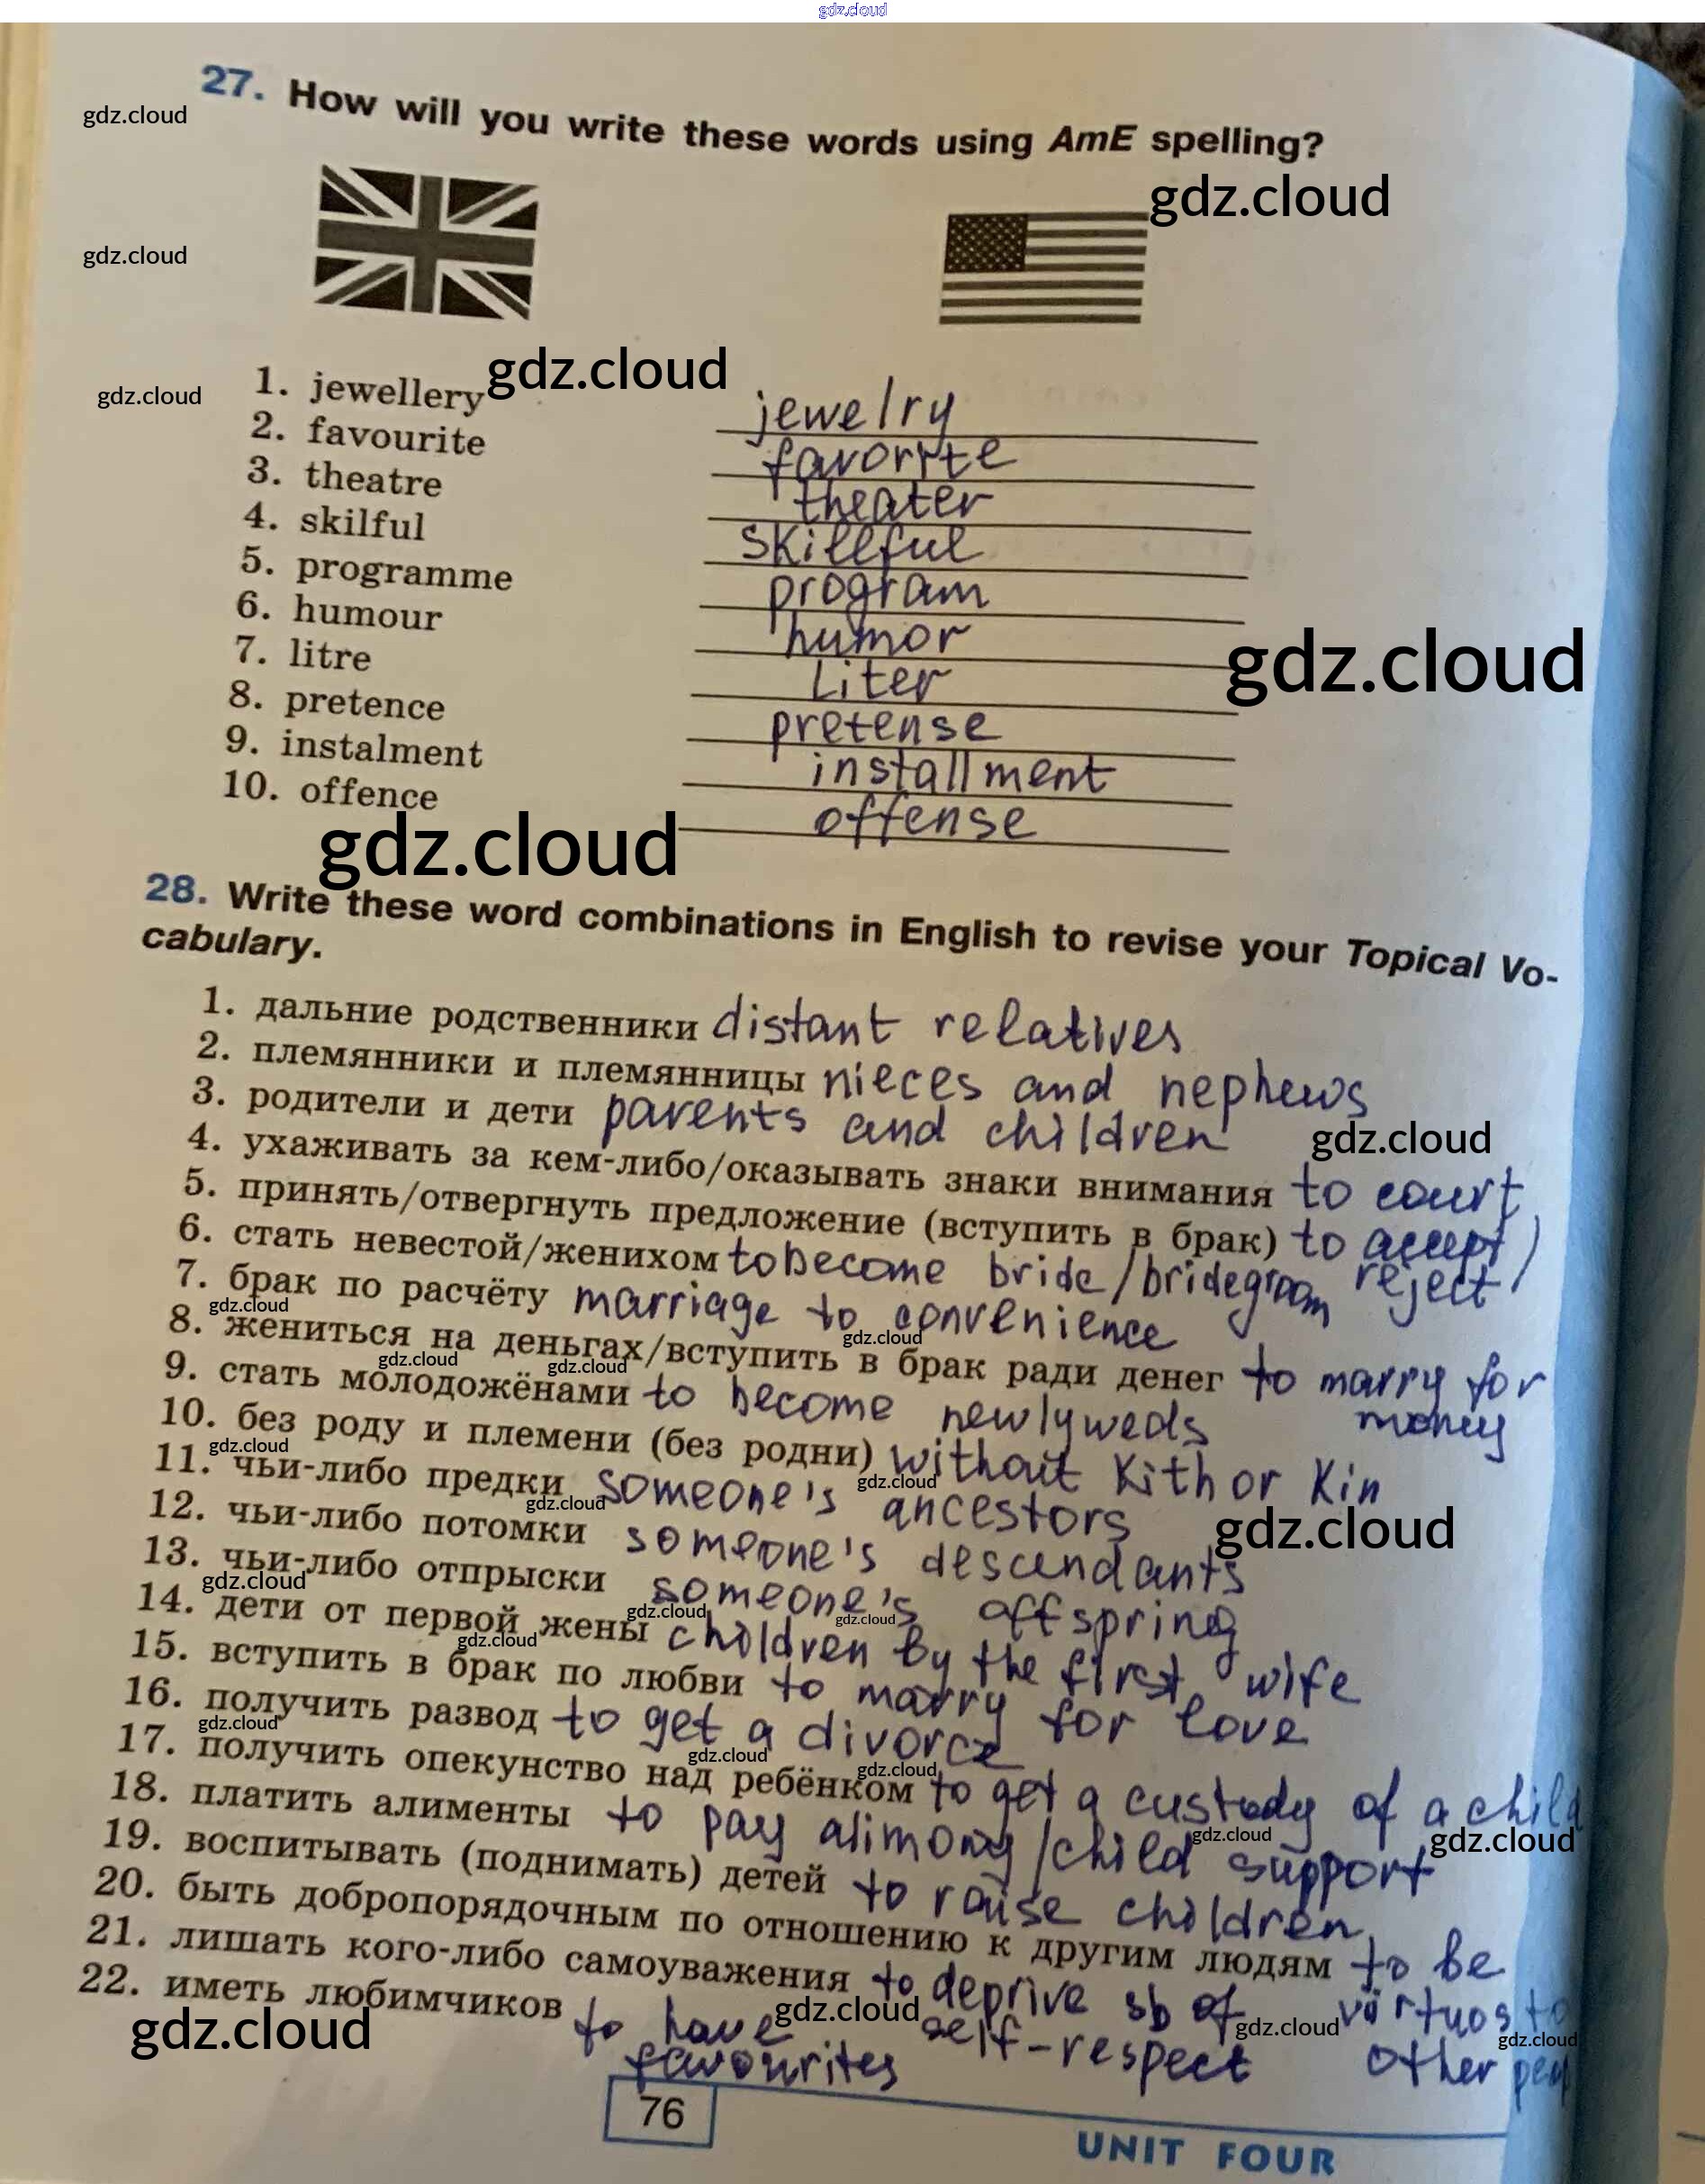 gdz.cloud
27. How will you write these words using AmE spelling?
gdz.cloud
gdz.cloud
gdz.cloud
gdz.cloud
gdz.cloud
1. jewellery jewelry
2. favourite favorite
3. theatre theater
4. skilful skillful
5. programme program
6. humour humor
7. litre Liter
gdz.cloud
8. pretence pretense
9. instalment installment
10. offence offense
gdz.cloud
28. Write these word combinations in English to revise your Topical Vo-
cabulary.
1. дальние родственники distant relatives
2. племянники и племянницы nieces and nephews
3. родители и дети parents and children
gdz.cloud
4. ухаживать за кем-либо/оказывать знаки внимания to court
5. принять/отвергнуть предложение (вступить в брак) to accept/
reject
6. стать невестой/женихом to become bride/bridegroom
7. брак по расчёту marriage to convenience
gdz.cloud
gdz.cloud
8. жениться на деньгах/вступить в брак ради денег to marry for
money
gdz.cloud
gdz.cloud
9. стать молодожёнами to become newlyweds
10. без роду и племени (без родни) without Kith or Kin
gdz.cloud
gdz.cloud
11. чьи-либо предки someone's ancestors
gdz.cloud
gdz.cloud
12. чьи-либо потомки someone's descendants
13. чьи-либо отпрыски someone's offspring
gdz.cloud
gdz.cloud
gdz.cloud
14. дети от первой жены children by the first wife
gdz.cloud
15. вступить в брак по любви to marry for love
16. получить развод to get a divorce
gdz.cloud
gdz.cloud
gdz.cloud
17. получить опекунство над ребёнком to get a custody of a child
18. платить алименты to pay alimony/child support
gdz.cloud
gdz.cloud
19. воспитывать (поднимать) детей to raise children
20. быть добропорядочным по отношению к другим людям to be
virtuos to
other
21. лишать кого-либо самоуважения to deprive sb of
self-respect
22. иметь любимчиков to have
favourites
gdz.cloud
gdz.cloud
gdz.cloud
gdz.cloud
76
UNIT FOUR